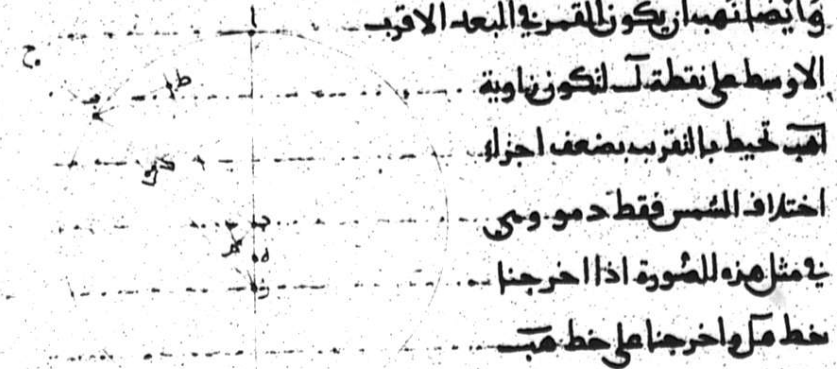 وأيضا نهب ان يكون القمر في البعد الاقرب
الاوسط على نقطة آ لتكون زاوية
اهب تحيط بالتقريب بضعف اجزاء
اختلاف الشمس فقط د مو وهي
في مثل هذه الصورة اذا اخرجنا
خط هل واخرجنا على خط هب
ا
ح
ط
ب
ه